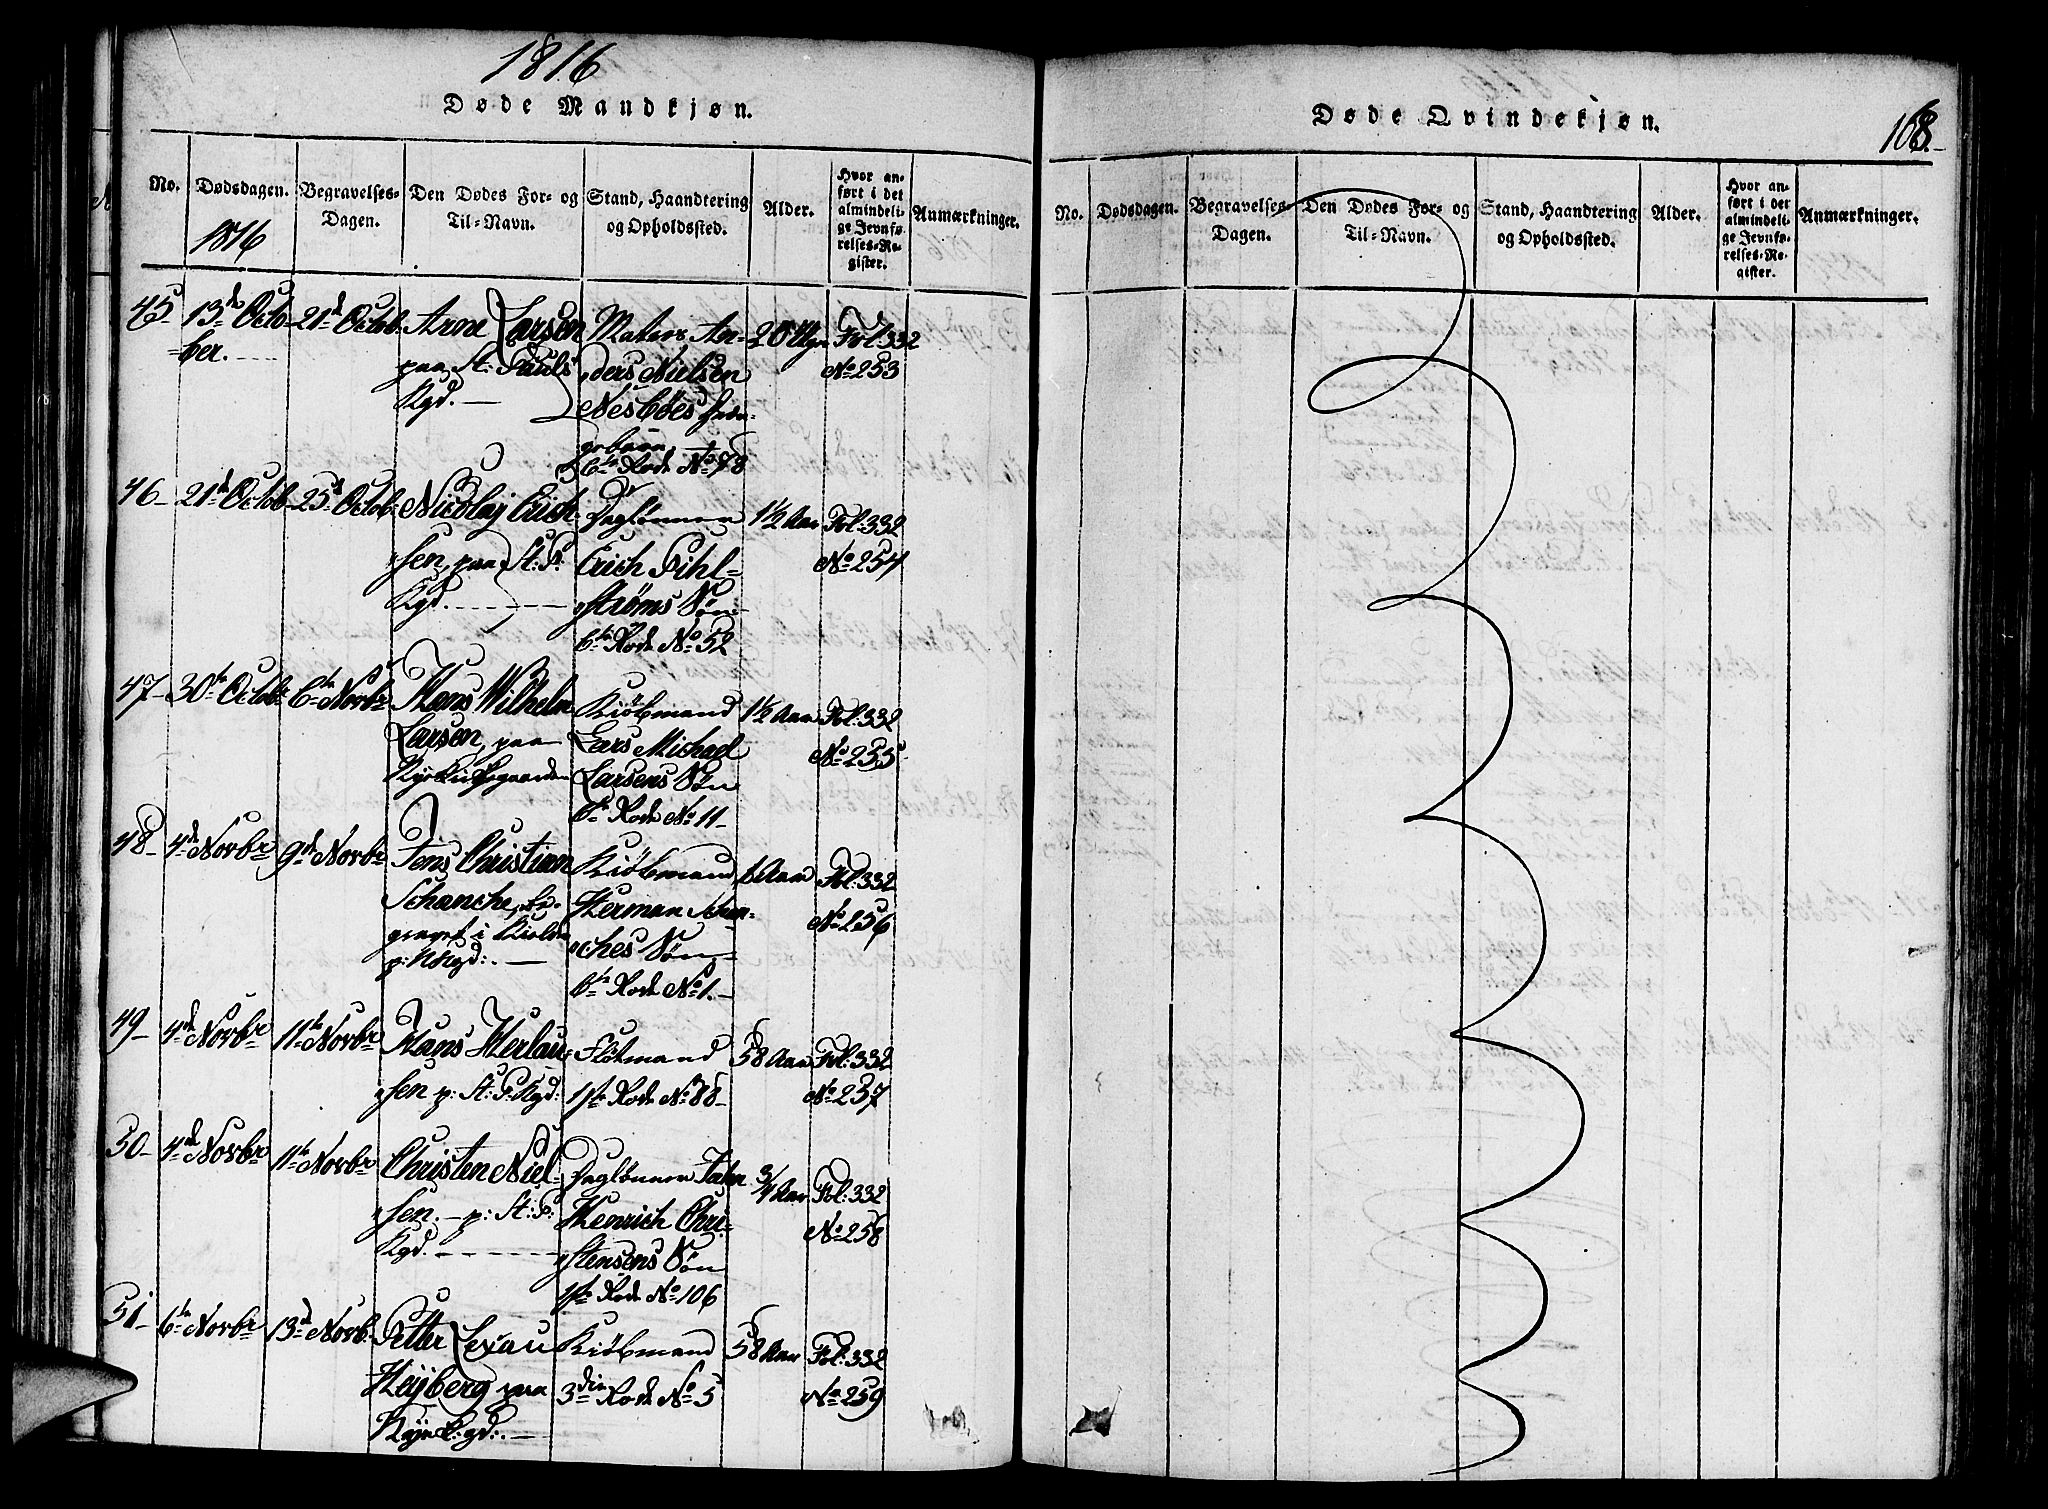 1816
Døde Mandkjøn.
No.
Dødsdagen.
1816
Begravelses-
Dagen.
Den Dødes For- og
Til-Navn.
Stand, Haandtering
og Opholdssted.
Alder.
Hvor an-
ført i det
almindeli-
ge Jevnfø-
relses-Re-
gister.
Anmærkninger.
45-
13de Octo-
ber.
21d Octob.
Arne Larsen
paa St: Pauls
Kgd.
Matros An-
ders Nielsen
Nesbøes
6te Rode No 78
20 Uger
Fol: 332
No 253
46-
21d Octob-
25d Octob:
Nicolaj Erich-
sen, paa St: P:
Kgd.
Daglønner
Erich Pihl-
strøms Søn
6te Rode No 52
1½ Aar
Fol: 332
No 254
47-
30te Octobr
6te Novbr
Hans Wilhelm
Larsen, paa
Kiøbmand
Lars Michael
Larsens Søn
6te Rode No 11-
1½ Aar
Fol: 332
No 255
48-
4de Novbr
9de Novbr
Jens Christian
Schanche, be-
gravet i
p: NKgd:
Kiøbmand
Herman Schan-
ches Søn
6te Rode No 1.
Aar
Fol: 332
No 256
49-
4de Novbr
11te Novbr
Hans Herlau-
sen p: St: P: Kgd:
Flotmand
1ste Rode No 88-
58 Aar
Fol: 332
No 257
50-
4de Novbr
11te Novbr
Christen Niel-
sen.- p: St: P:
Kgd.
Daglønner
Henrich Chri-
stensens Søn
1ste Rode No 106
3/4 Aar
Fol: 332
No 258
51-
6te Novbr
13d Novb.
Petter Lexau
Heyberg paa
Kiøbmand
3die Rode No 5
58 Aar
Fol: 332
No 259
Døde Qvindekjøn.
168.
No.
Dødsdagen.
Begravelses-
Dagen.
Den Dødes For- og
Til-Navn.
Stand, Haandtering
og Opholdssted.
Alder.
Hvor an-
ført i det
almindeli-
ge Jevnfø-
relses-Re-
gister.
Anmærkninger.